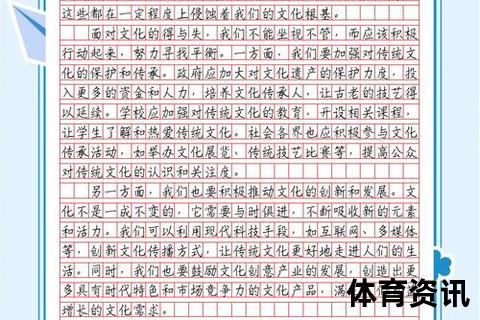 这些都在一定程度上侵蚀着我们的文化根基。
面对文化的得与失，我们不能坐视不管，而应该积极
行动起来，努力寻找平衡。一方面，我们要加强对传统文
化的保护和传承。政府应加大对文化遗产的保护力度，投
入更多的资金和人力，培养文化传承人，让古老的技艺得
以延续。学校应加强对传统文化的教育，开设相关课程，
让学生了解和热爱传统文化。社会各界也应积极参与文化
传承活动，如举办文化展览、传统技艺比赛等，提高公众
对传统文化的认识和关注度。
另一方面，我们也要积极推动文化的创新和发展。文
化不是一成不变的，它需要与时俱进，不断吸收新的元素
和活力。我们可以利用现代科技手段，如互联网、多媒体
等，创新文化传播方式，让传统文化更好地走进人们的生
活。同时，我们也要鼓励文化创意产业的发展，创造出更
多具有时代特色和市场竞争力的文化产品，满
增长的文化需求。
体育资讯